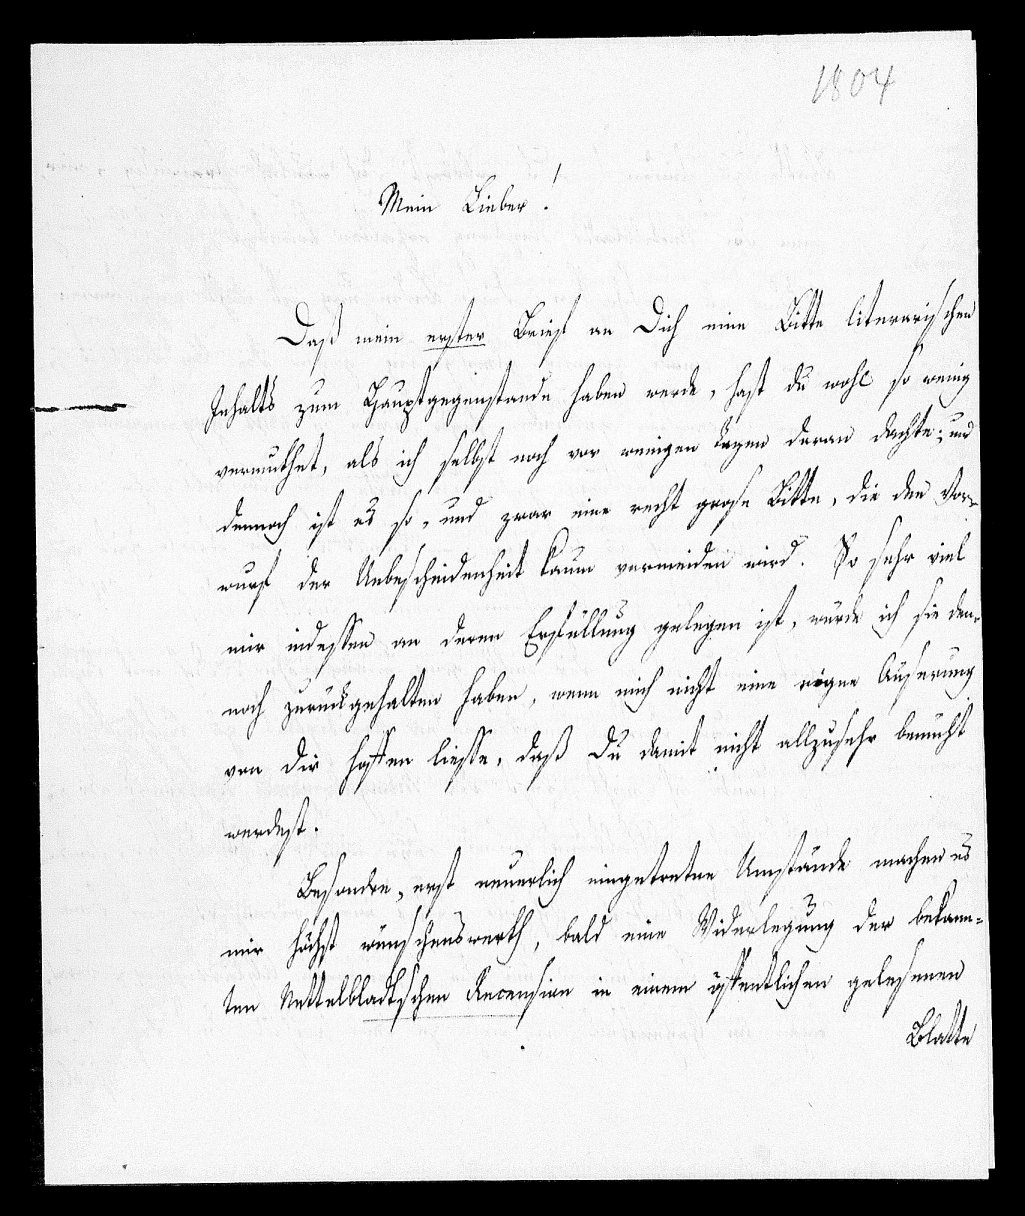 1804
Mein Lieber!
Daß mein erster Brief an Dich eine Bitte literarischen
Inhalts zum Hauptgegenstande haben werde, hast du wohl so wenig
vermuthet, als ich selbst noch vor wenigen Tagen daran dachte; und
dennoch ist es so, und zwar eine recht grose Bitte, die den Vor-
wurf der Unbescheidenheit kaum vermeiden wird. So sehr viel
mir indessen an deren Erfüllung gelegen ist, würde ich sie den-
noch zurückgehalten haben, wenn mich nicht eine eigne Äuserung
von Dir hoffen liesse, daß Du damit nicht allzusehr bemüht
werdest.
Besondre, erst neuerlich eingetretne Umstände machen es
mir höchst wünschenswerth, bald eine Widerlegung der bekann-
ten Nettelbladtschen Recension in einem öffentlichen gelesenen
Blatte